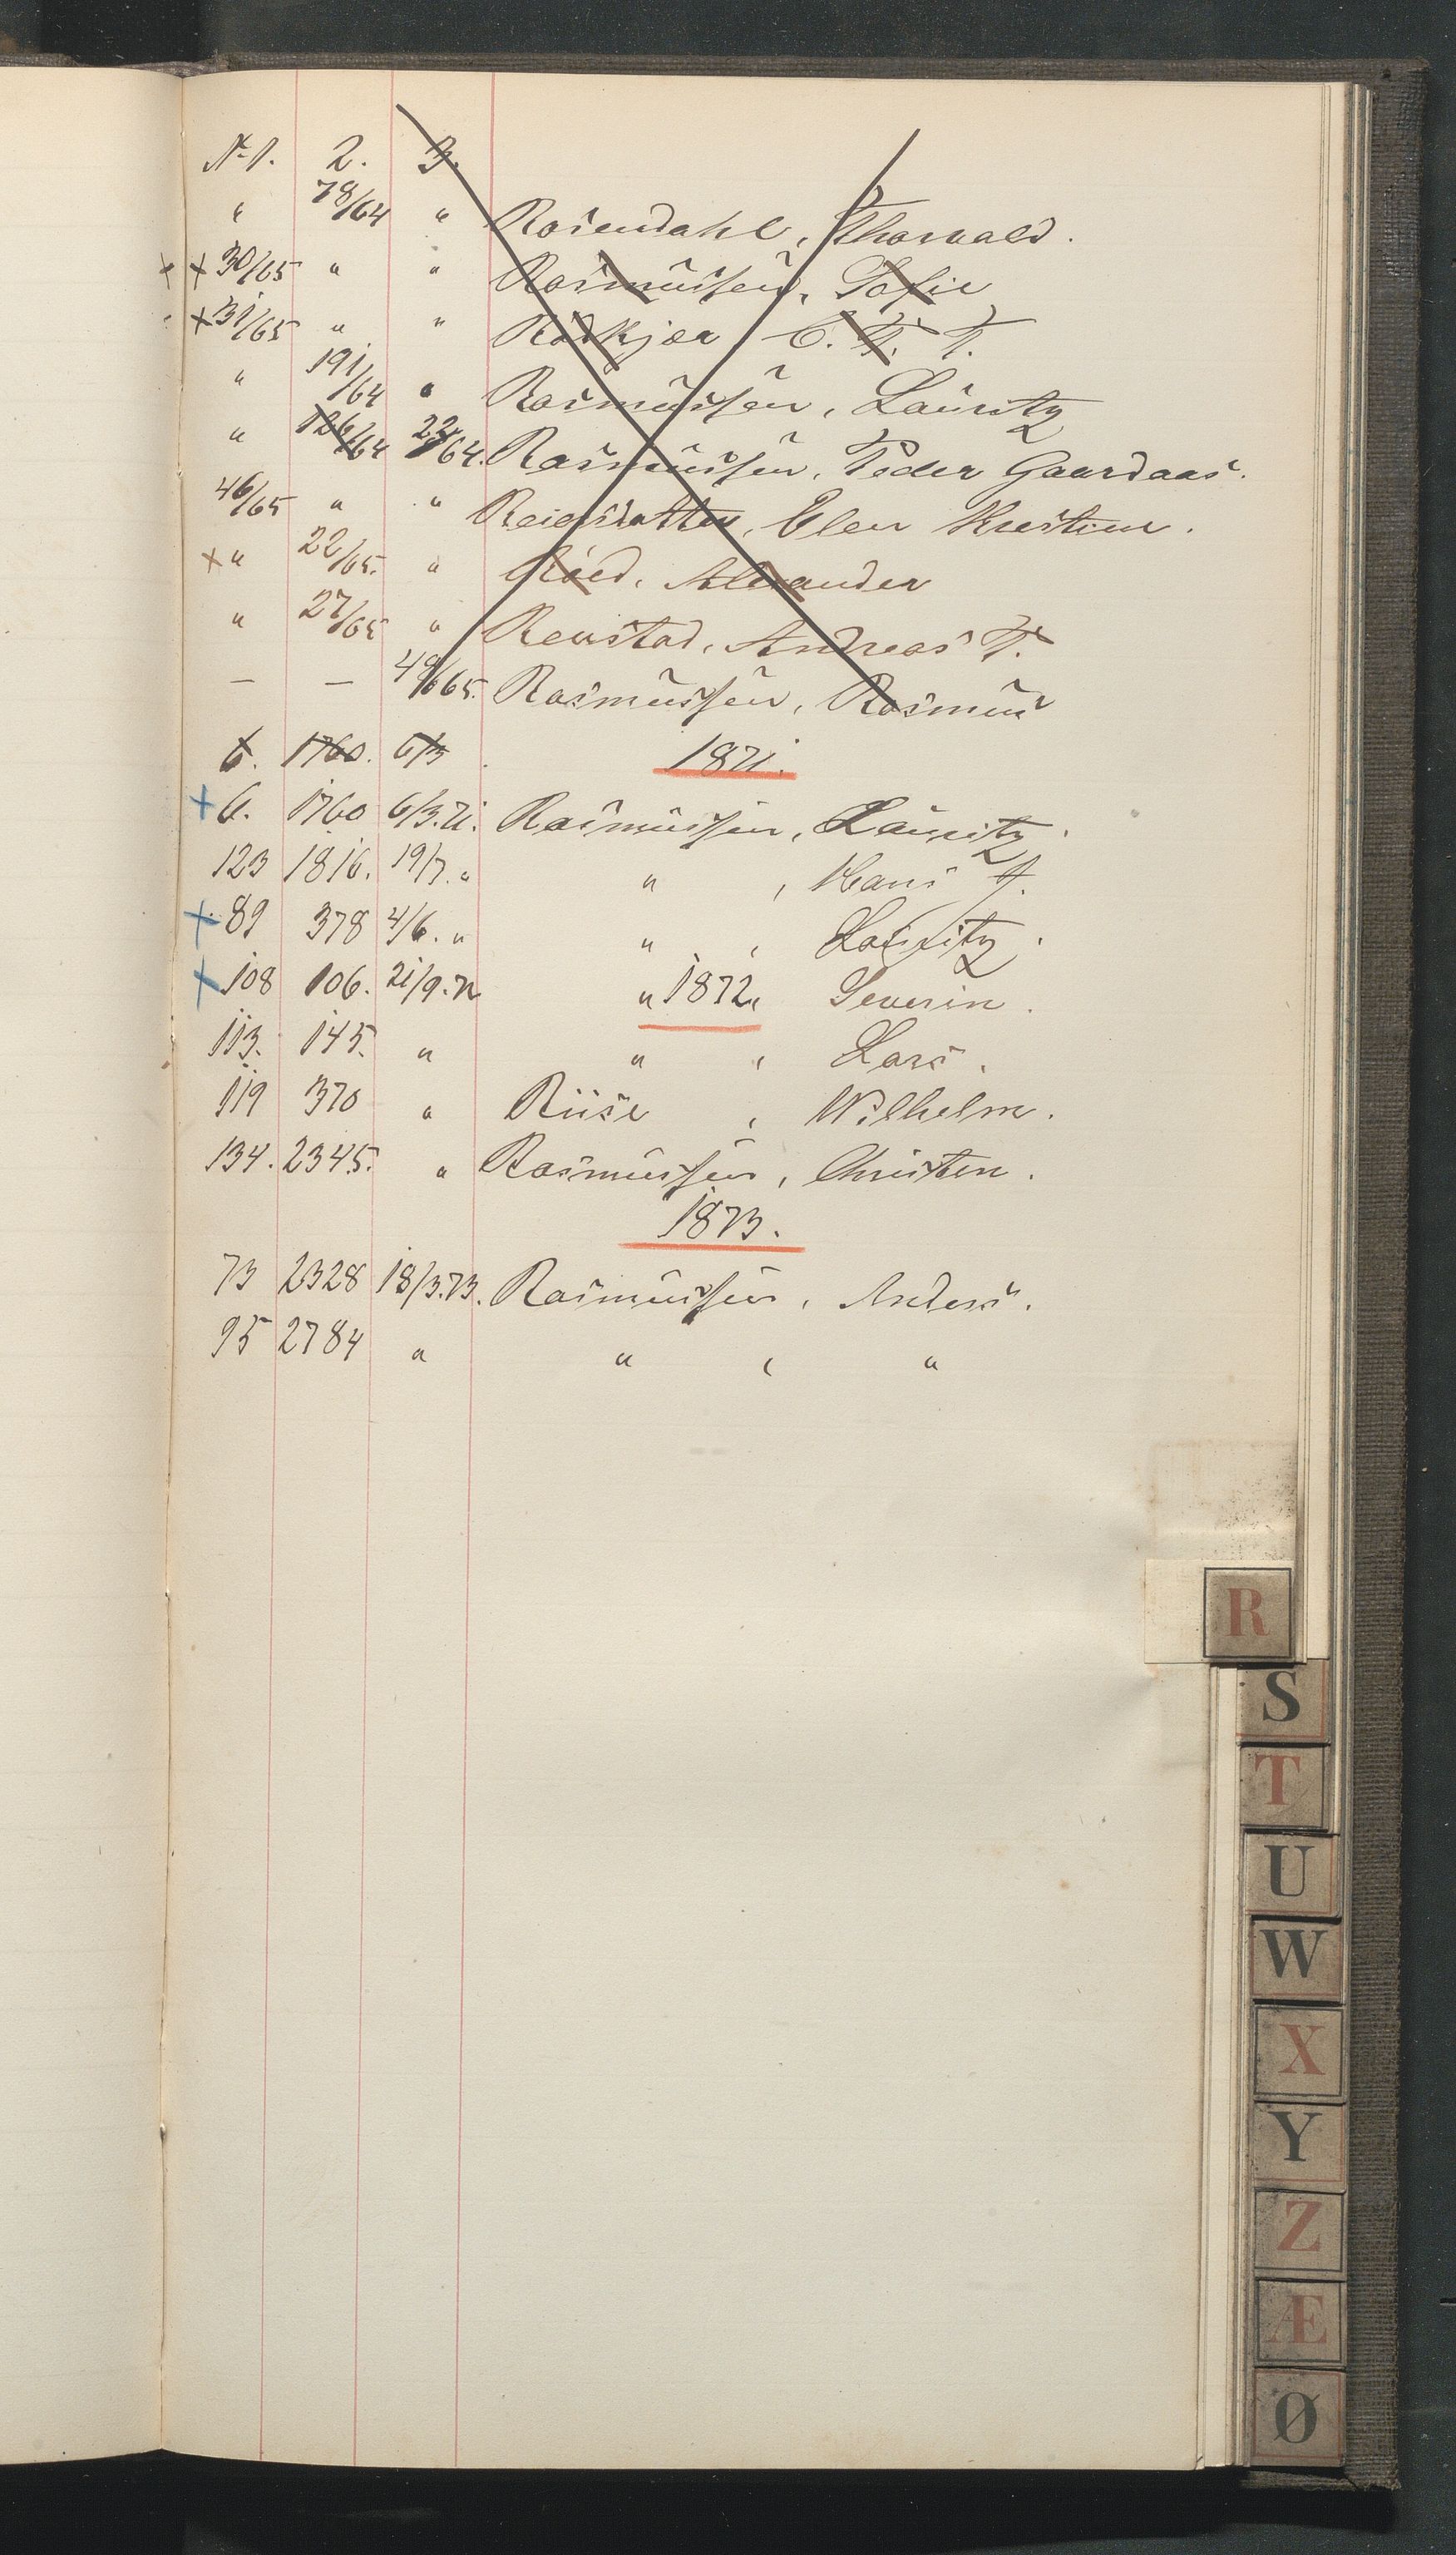 No 1. 2. 3.
" 78/64 " Rosendahl, Thorvald.
+ + 30/65 " " Rasmussen, Sofie
+ 31/65 " " Rødkjær, C. F. T.
" 191/64 " Rasmussen, Lauritz
" 126/64 22/64. Rasmussen, Peder Gaardaas.
46/65 " " Reiersdatter, Elen Kristine.
+ " 22/65. " Röed, Alexander
" 27/65 " Renstad, Andreas T.
— — 48/65. Rasmussen, Rasmus
6. 1760. 6/3 1871.
+ 6. 1760 6/3.71. Rasmussen, Lauritz.
123 1816. 19/7. " " , Hans J.
+ 89 378 4/6. " " , Lauritz.
+ 108 106. 21/9.72 " 1872 " Severin.
113. 145. " " , Lars.
119 370 " Riise , Wilhelm.
134. 2345. " Rasmussen, Christen.
1873.
73 2328 18/3.73. Rasmussen, Anders.
95 2784 " " , "
R
S
T
U
W
X
Y
Z
Æ
Ø